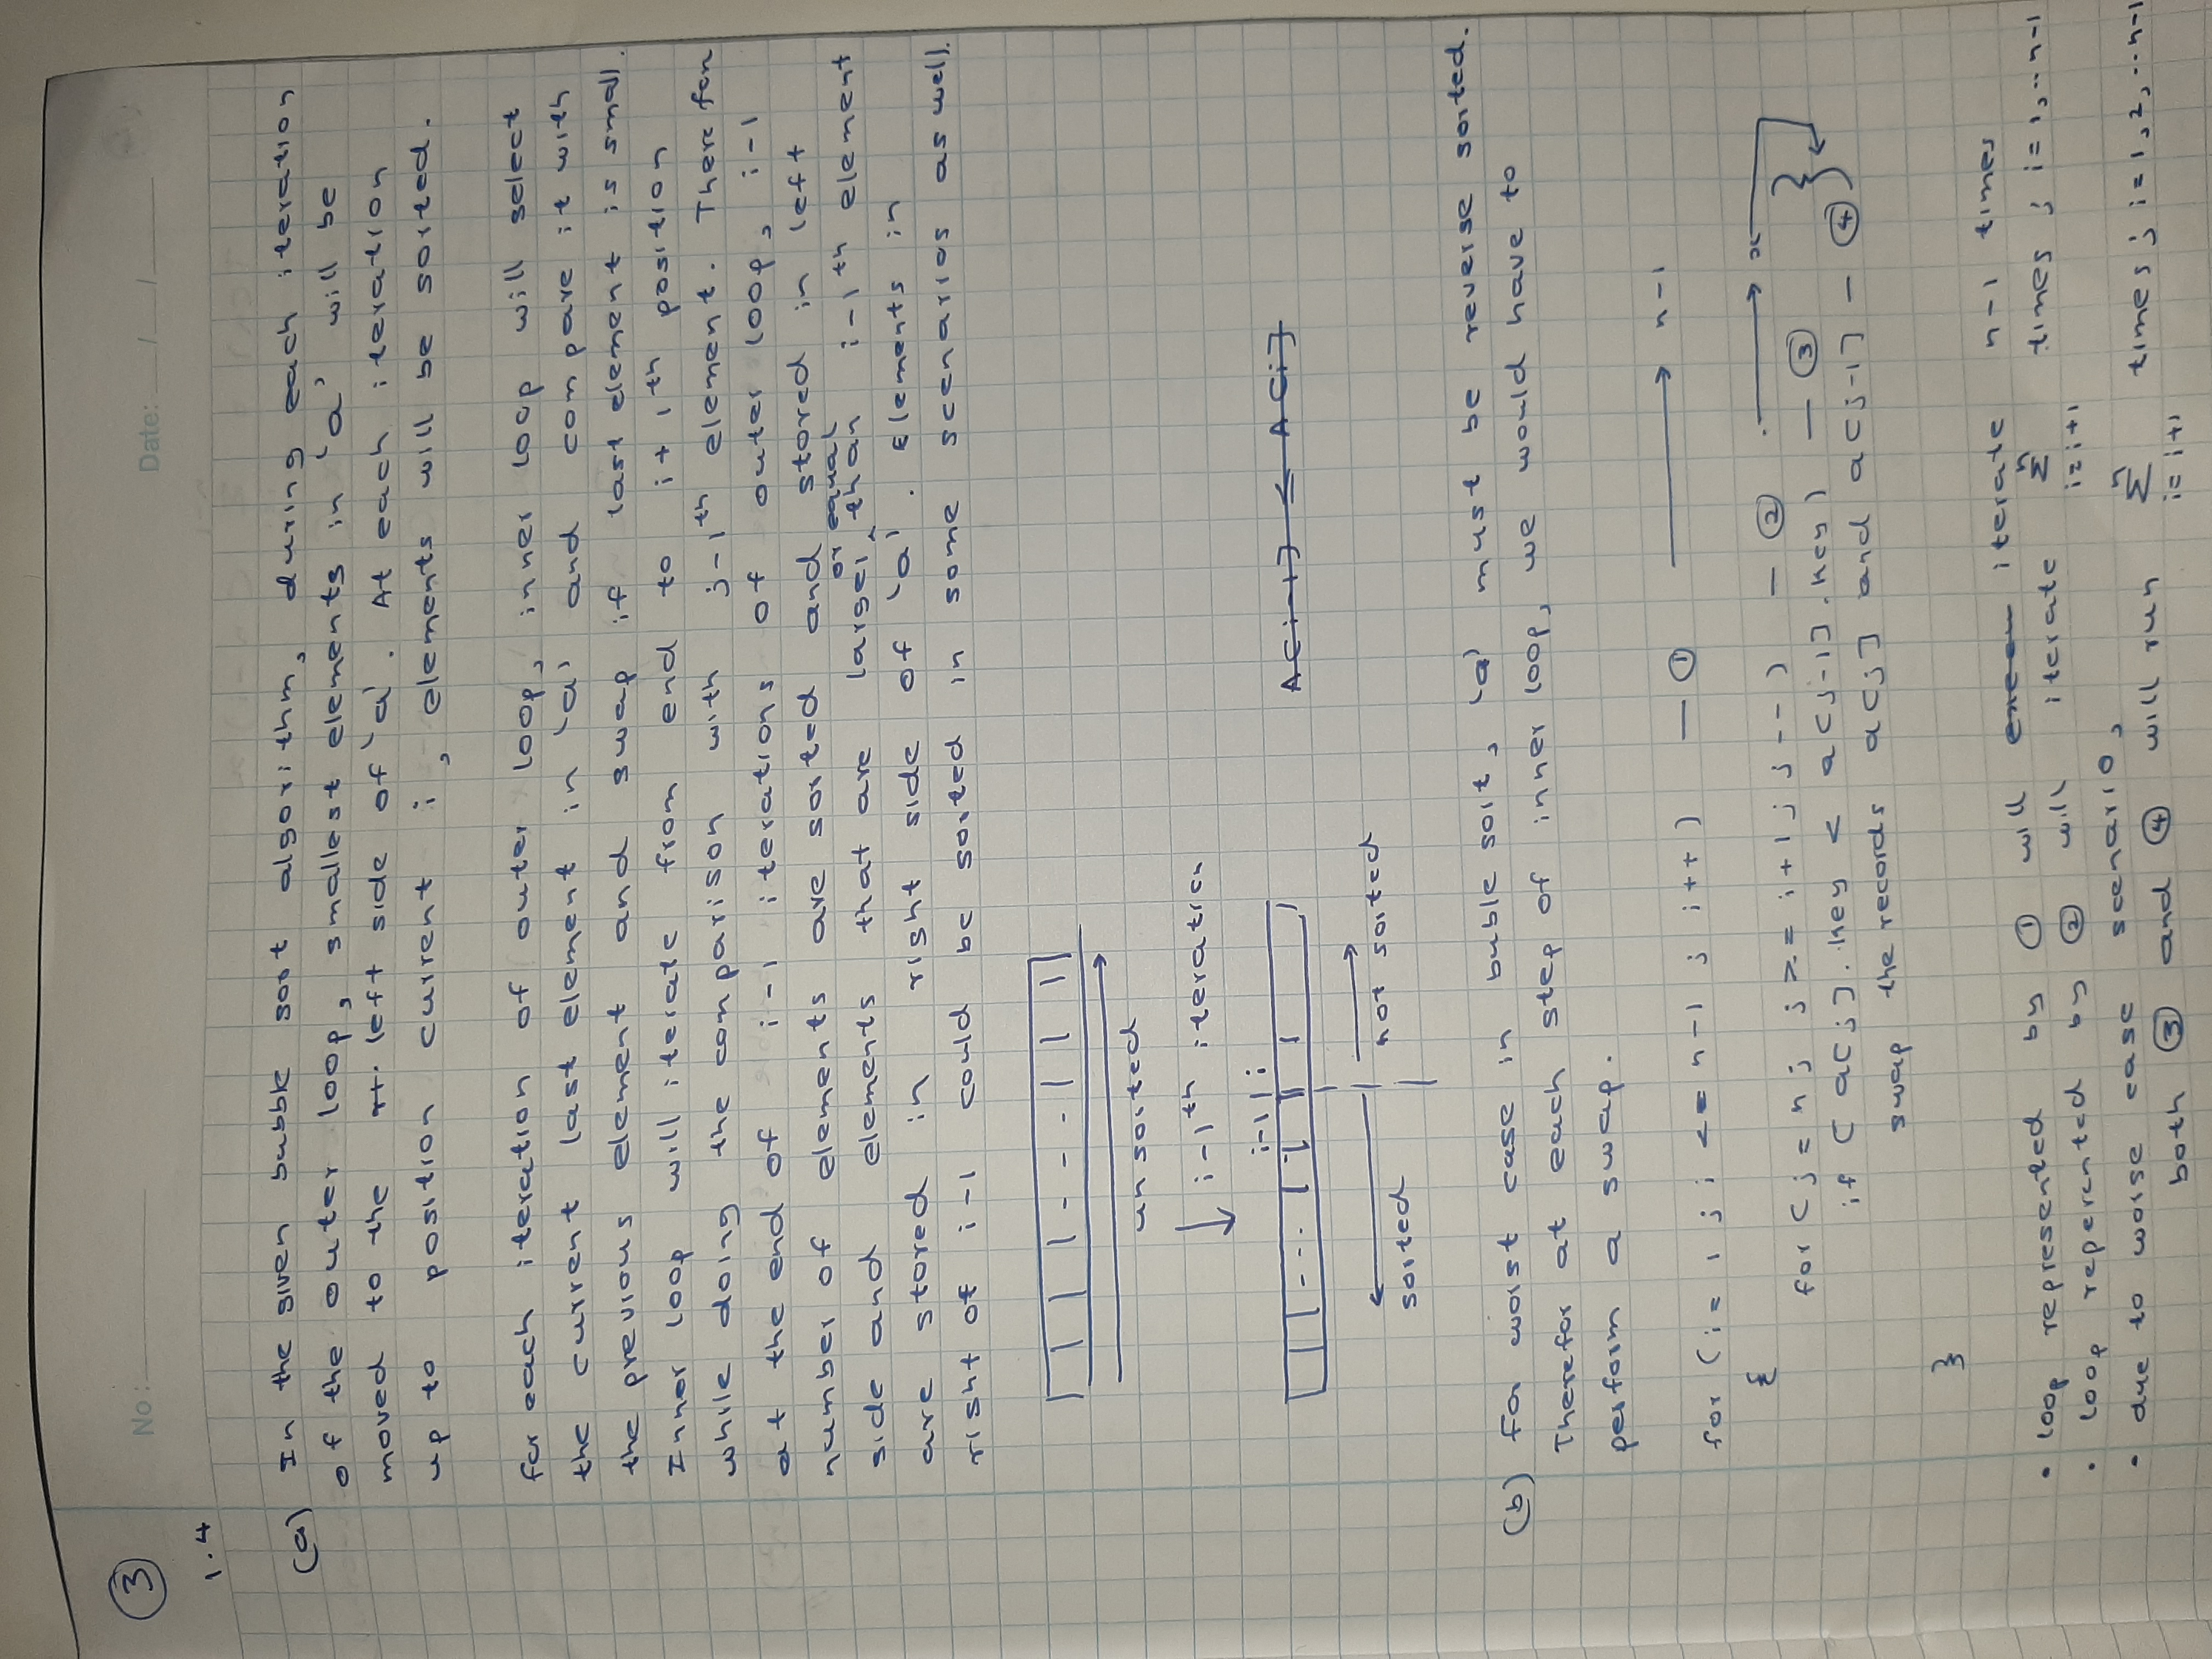 3
No :
Date: / /
1.4
(a) In the given bubble sort algorithm, during each iteration
of the outer loop, smallest elements in 'a' will be
moved to the left side of 'a'. At each iteration
up to position current i, elements will be sorted.
for each iteration of outer loop, inner loop will select
the current last element in 'a' and compare it with
the previous element and swap if last element is small.
Inner loop will iterate from end to i+1th position
while doing the comparison with j-1th element. Therefor
at the end of i-1 iterations of outer loop, i-1
number of elements are sorted and stored in left
side and elements that are larger or equal than i-1th element
are stored in right side of 'a'. Elements in
right of i-1 could be sorted in some scenarios as well.
unsorted
i-1th iteration
i-1 i
A[i-1] ≤ A[i]
sorted
not sorted
(b) for worst case in buble sort, 'a' must be reverse sorted.
Therefor at each step of inner loop, we would have to
perform a swap.
for (i = 1 ; i <= n-1 ; i++) — ① → n-1
{
for (j = n; j >= i+1; j--) — ② → x
if (a[j].key < a[j-1].key) — ③
swap the records a[j] and a[j-1] — ④
}
• loop represented by ① will iterate n-1 times
• loop reperented by ② will iterate n Σ i=i+1 times ; i=1,..n-1
• due to worse case scenario,
both ③ and ④ will run n Σ i=i+1 times ; i=1,2,..n-1